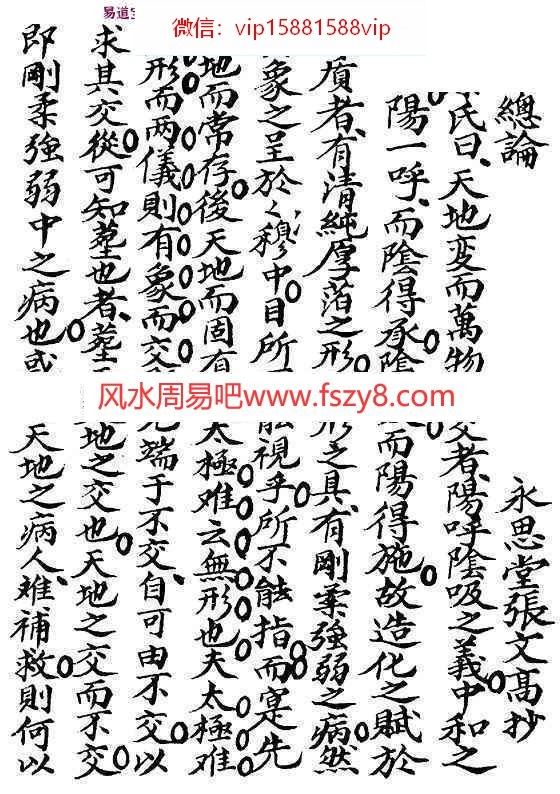 易道
微信：vip15881588vip
總論
永思堂張文高抄
氏曰天地变而萬物
交者陽呼陰吸之義中和之
陽一呼而陰得承陰
而陽得施故造化之賦於
質者有清純厚薄之形
形之具有剛柔強弱之病然
象之呈於穆中目所
能視乎所不能指而寔先
地而常存後天地而固有
太極难云無形也夫太極难
形而两儀則有象而交
端于不交自可由不交以
求其交從可知塟也者塟
地之交也天地之交而不交
即剛柔強弱中之病也或
天地之病人难補救則何以
风水周易吧www.fszy8.com